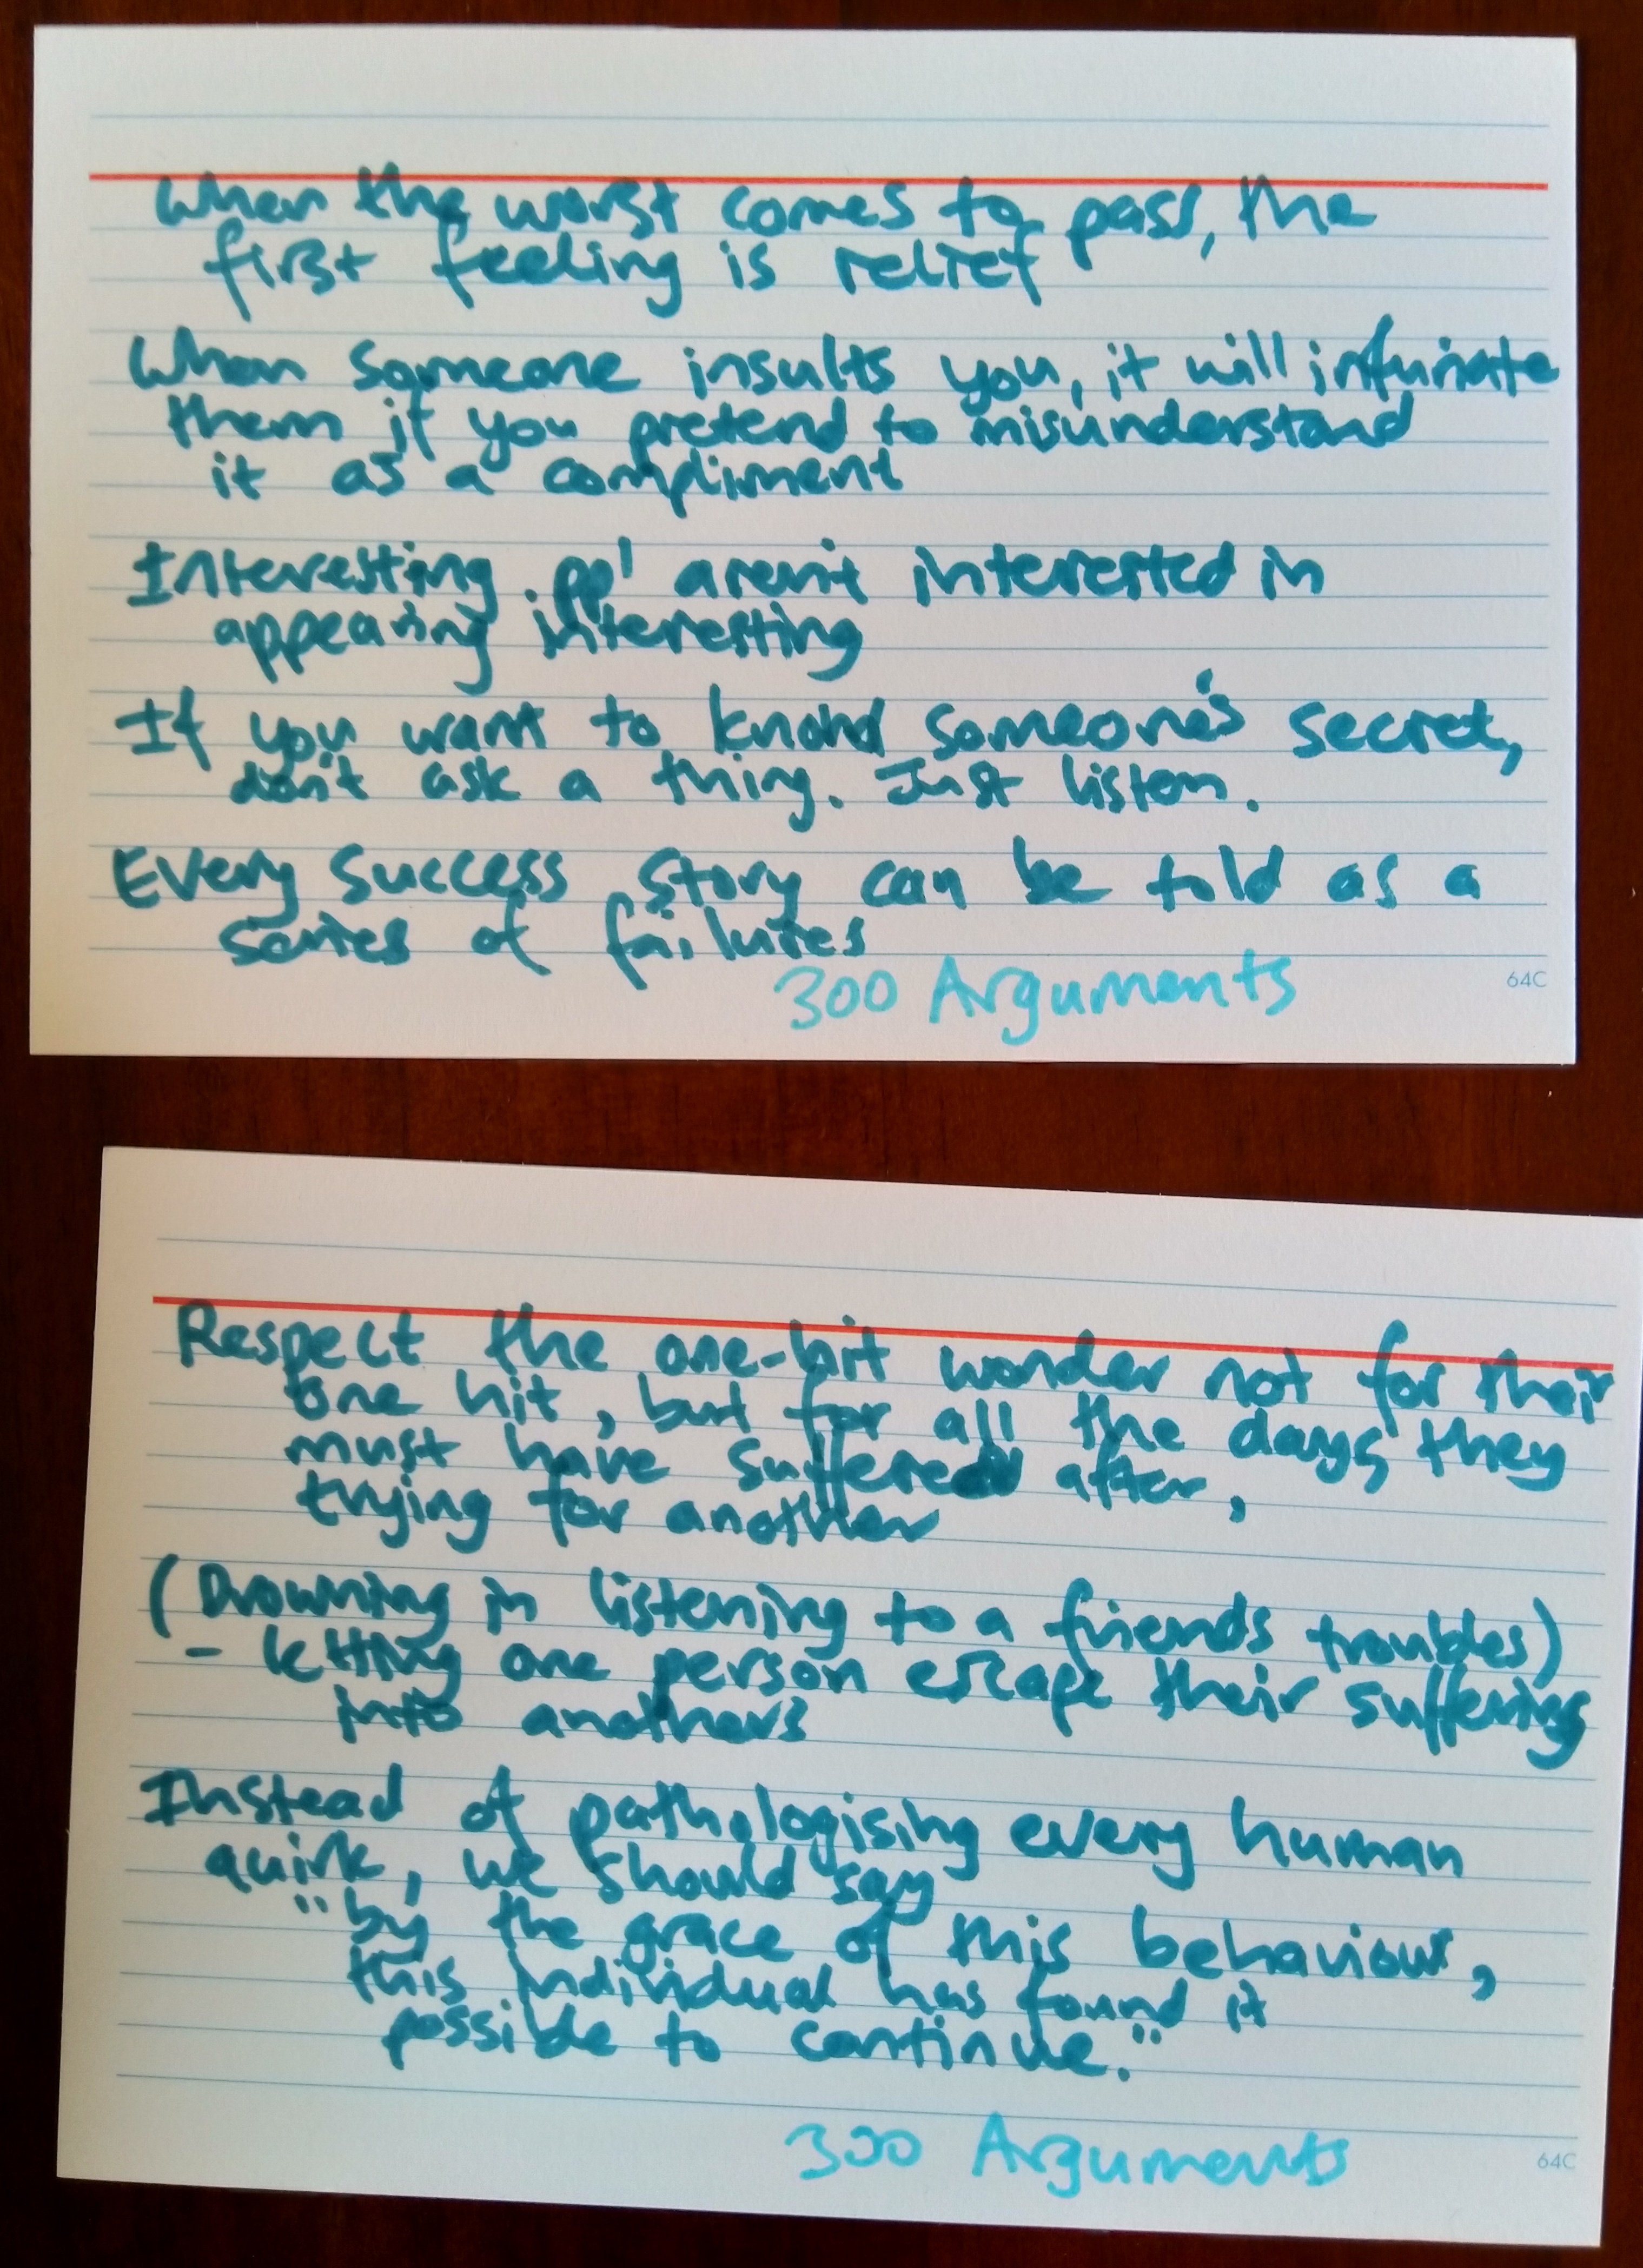 When the worst comes to pass, the
first feeling is relief
When someone insults you, it will infuriate
them if you pretend to misunderstand
it as a compliment
Interesting ppl aren't interested in
appearing interesting
If you want to know someone's secret,
don't ask a thing. Just listen.
Every success story can be told as a
series of failures
300 Arguments
64C
Respect the one-hit wonder not for their
one hit, but for all the days they
must have suffered after,
trying for another
(Drowning in listening to a friends troubles)
- letting one person escape their suffering
into anothers
Instead of pathologising every human
quirk, we should say
"by the grace of this behaviour,
this individual has found it
possible to continue."
300 Arguments
64C